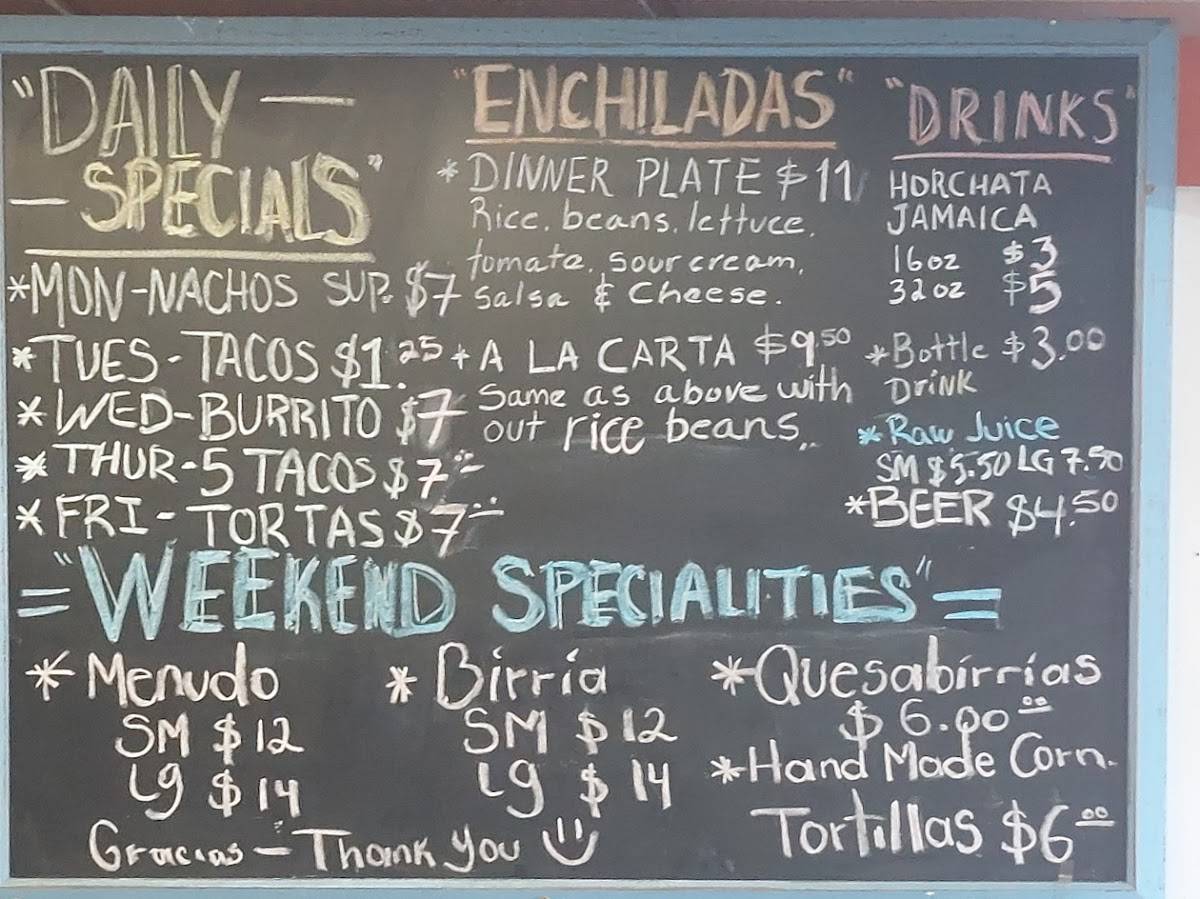 "DAILY —
— SPECIALS"
*MON-NACHOS SUP. $7
*TUES-TACOS $1.25
*WED-BURRITO $7
*THUR-5 TACOS $7
*FRI-TORTAS $7
"ENCHILADAS"
*DINNER PLATE $11
Rice, beans, lettuce,
tomate, sour cream,
salsa & cheese.
+ A LA CARTA $9.50
Same as above with
out rice beans
"DRINKS"
HORCHATA
JAMAICA
16oz $3
32oz $5
*Bottle $3.00
Drink
*Raw Juice
SM $5.50 LG 7.50
*BEER $4.50
="WEEKEND SPECIALITIES"=
*Menudo
SM $12
Lg $14
*Birria
SM $12
Lg $14
*Quesabirrías
$6.00 00
*Hand Made Corn.
Tortillas $6 00
Gracias — Thank you